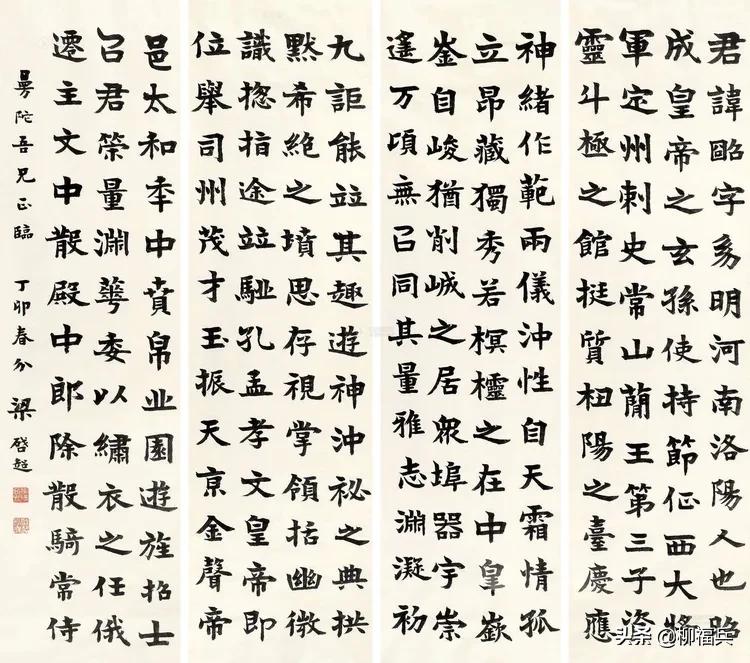 君諱昭字幼明河南洛陽人也昭
成皇帝之玄孫使持節征西大將
軍定州刺史常山蕑王第三子資
靈斗極之館挺質杻陽之臺慶應
神緒作範兩儀沖性自天霜情孤
立昂藏獨秀若榠櫺之在中皐嶽
崟自峻猶削峸之居眾埠器宇崇
遙万頃無㠯同其量雅志淵凝初
九詎能竝其趣遊神沖祕之典拱
默希絶之墳思存視掌領括幽微
識揔指途竝駈孔孟孝文皇帝即
位舉司州茂才玉振天京金聲帝
邑太和年中賁帛丘園遊旌招士
召君榮量淵華委以繡衣之任俄
遷主文中散殿中郎除散騎常侍
曼陀吾兄正臨 丁卯春分 梁啓超
头条 @柳福兵